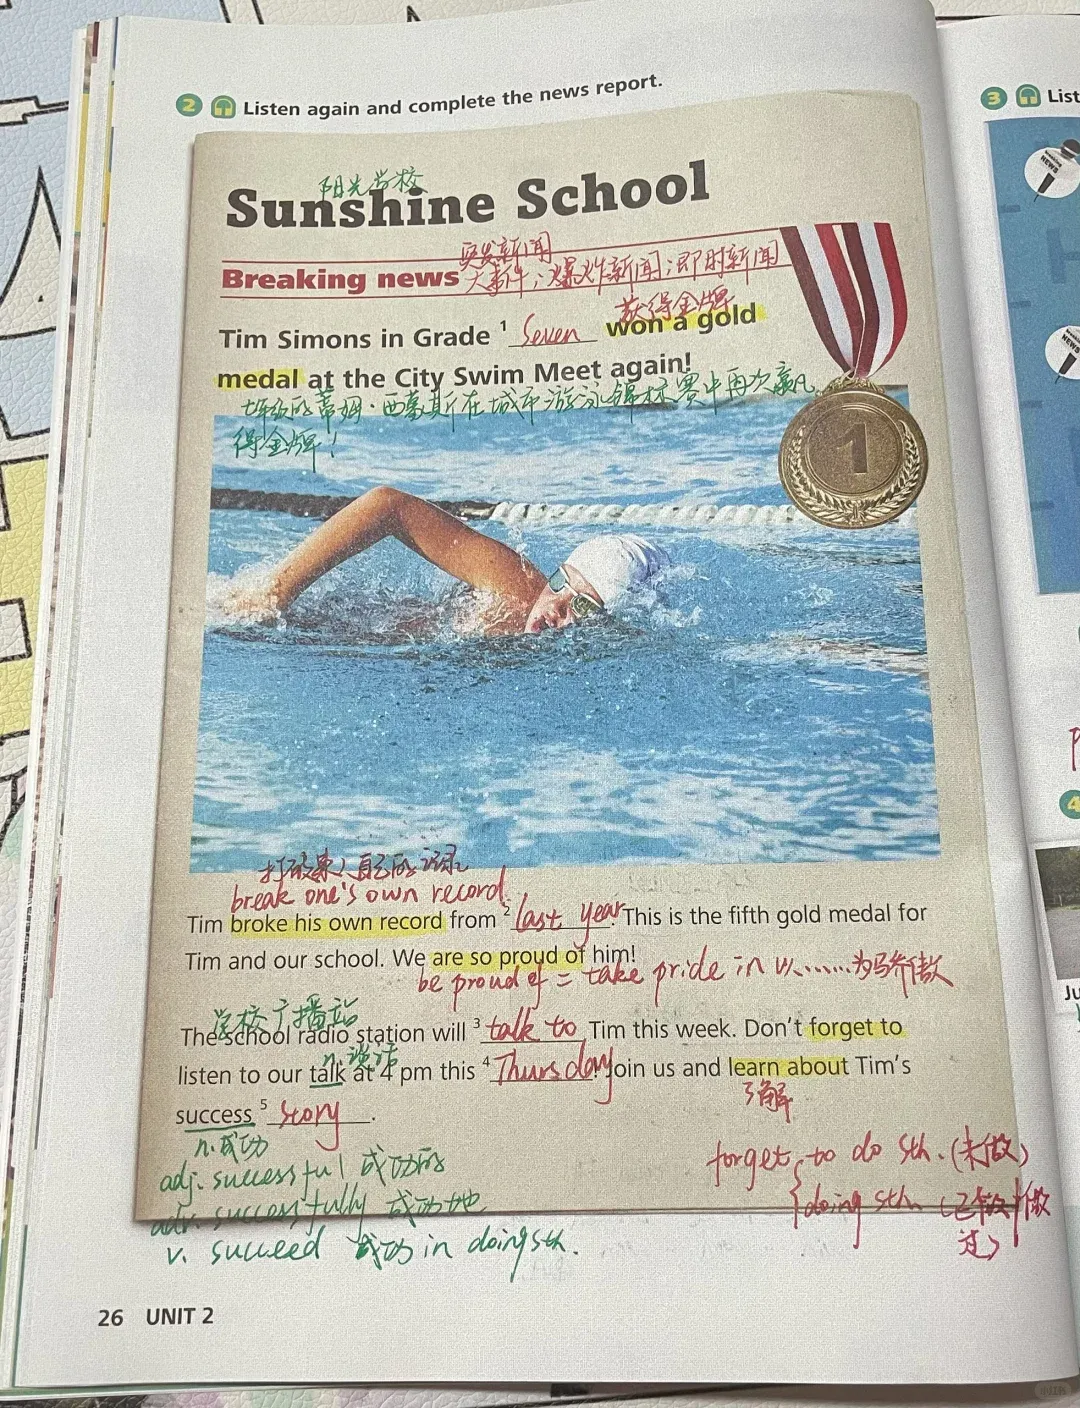 2 Listen again and complete the news report.
3 List
阳光学校
Sunshine School
突发新闻
Breaking news 大事件；爆炸新闻；即时新闻
获得金牌
Tim Simons in Grade 1 Seven won a gold
medal at the City Swim Meet again!
七年级的蒂姆·西蒙斯在城市游泳锦标赛中再次赢
得金牌！
1
NEWS
NEWS
打破某人自己的记录
break one's own record
Tim broke his own record from 2 last year. This is the fifth gold medal for
Tim and our school. We are so proud of him!
be proud of = take pride in 以……为骄傲
学校广播站
The school radio station will 3 talk to Tim this week. Don't forget to
n.谈话
listen to our talk at 4 pm this 4 Thursday. Join us and learn about Tim's
了解
success 5 story.
n.成功
adj. successful 成功的
adv. successfully 成功地
v. succeed 成功 in doing sth.
forget to do sth.(未做)
doing sth. (已做
做
过)
26 UNIT 2
4
Ju
小红书